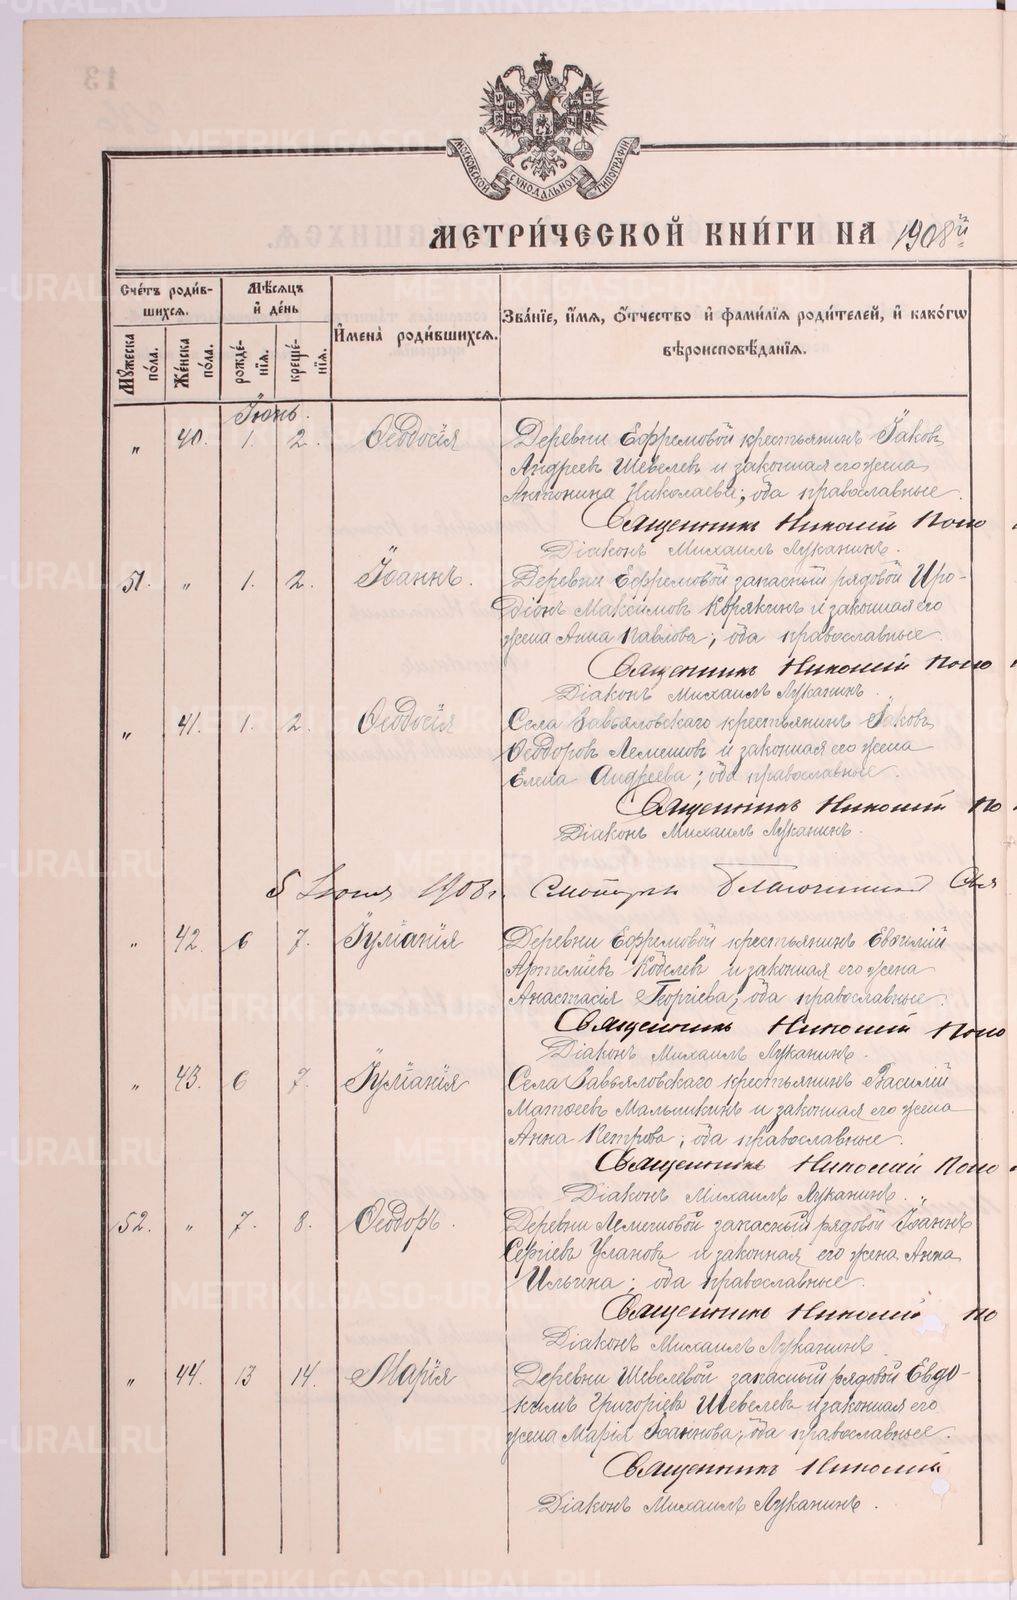 13
МОСКОВСКОЙ СѴНОДАЛЬНОЙ ТИПОГРАФІИ
МЕТРИ́ЧЕСКОЙ КНИ́ГИ НА 1908й
Сче́тъ роди́в-
шихся.
Мѣ́сяцъ
и҆ де́нь
И҆мена̀ роди́вшихся.
Зва́нїе, и҆́мя, ѻ҆́тчество и҆ фами́лїя роди́телей, и҆ како́гѡ
вѣроисповѣ́данїя.
Мꙋ́жеска
по́ла.
Же́нска
по́ла.
рожде́-
нїя.
креще́-
нїя.
Іюнь.
„ 40. 1. 2. Ѳеодосія Деревни Ефремовой крестьянинъ Іаковъ
Андреевъ Шевелевъ и законная его жена
Антонина Николаева; оба православные.
Священникъ Николай Попо
Діаконъ Михаилъ Луканинъ.
51. „ 1. 2. Іоаннъ. Деревни Ефремовой запасный рядовой Иро-
діонъ Максимовъ Корякинъ и законная его
жена Анна Павлова; оба православные.
Священникъ Николай Попо
Діаконъ Михаилъ Луканинъ.
„ 41. 1. 2. Ѳеодосія Села Завьяловскаго крестьянинъ Іаковъ
Ѳеодоровъ Лемешовъ и законная его жена
Елена Андреева; оба православные.
Священникъ Николай По
Діаконъ Михаилъ Луканинъ.
5 Іюня 1908 г. Смотрѣлъ Благочинный Свя
„ 42. 6 7. Іуліанія Деревни Ефремовой крестьянинъ Евѳимій
Артемьевъ Кобелевъ и законная его жена
Анастасія Георгіева; оба православные.
Священникъ Николай Попо
Діаконъ Михаилъ Луканинъ.
„ 43. 6 7. Іуліанія Села Завьяловскаго крестьянинъ Василій
Матѳеевъ Малышкинъ и законная его жена
Анна Петрова; оба православные.
Священникъ Николай Попо
Діаконъ Михаилъ Луканинъ.
52. „ 7. 8. Ѳеодоръ. Деревни Лемешовой запасный рядовой Іоаннъ
Сергіевъ Улановъ и законная его жена Анна
Ильина; оба православные.
Священникъ Николай По
Діаконъ Михаилъ Луканинъ.
„ 44. 13 14. Марія Деревни Шевелевой запасный рядовой Евдо-
кимъ Григоріевъ Шевелевъ и законная его
жена Марія Іоаннова; оба православные.
Священникъ Николай
Діаконъ Михаилъ Луканинъ.
METRIKI.GASO-URAL.RU